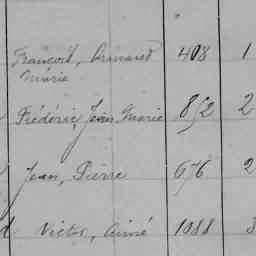 François, Armand 408 1
Marie
Frédéric, Jean Marie 852 2
Jean, Pierre 676 2
Victor, Aimé 1088 3